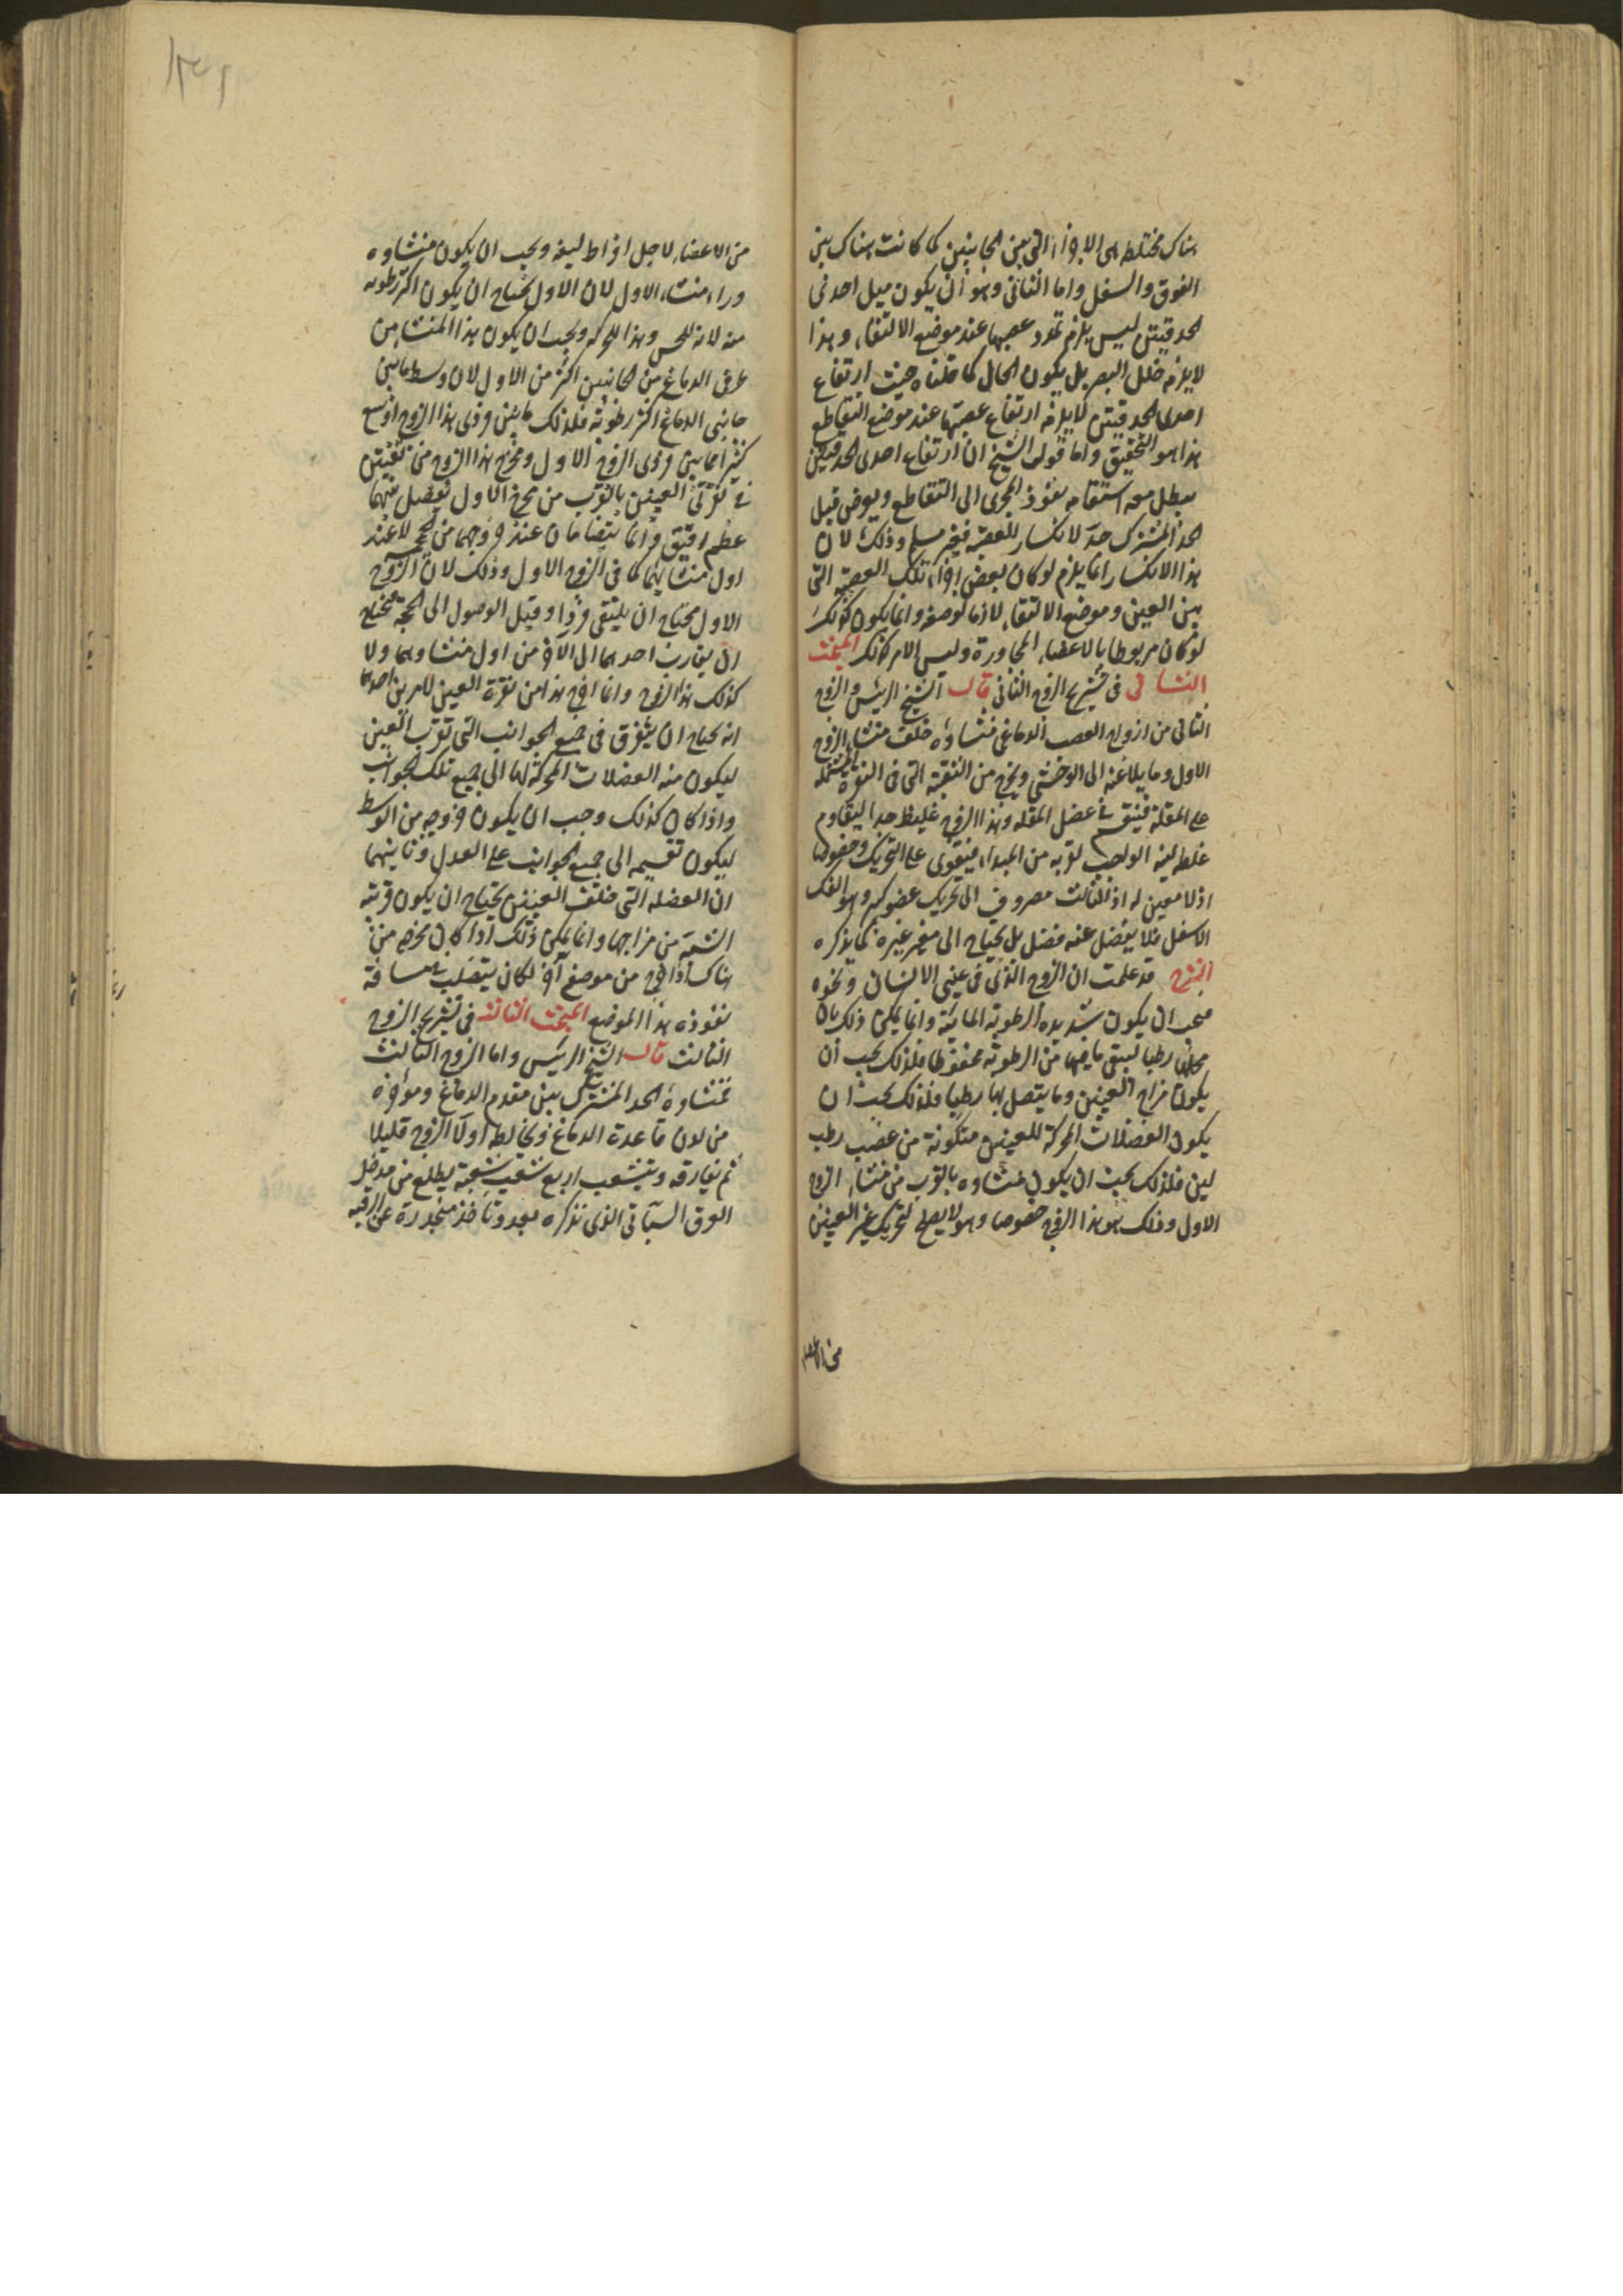 هناك مختلطه هى الاجزاء التى بين الجانبين كما كانت هناك بين
الفوق والسفل واما الثانى وهو ان يكون ميل احدى
الحدقيتين ليس يلزم تمدد عصبها عند موضع الالتقاء وهذا
لا يلزمه خلل البصر بل يكون الحال كما قلناه حيث ارتفاع
احدى الحدقيتين لا يلزمه ارتفاع عصبتها عند موضع التقاطع
هذا هو التحقيق واما قول الشيخ ان ارتفاع احدى الحدقتين
يبطل معه استقامه نفوذ المجرى الى التقاطع ويعرض قبل
الحد المشترك حد لانكسار العصبة فغير مسلم وذلك لان
هذا الانكسار انما يلزم لو كان بعض اجزاء تلك العصبة التى
بين العين وموضع الالتقاء لازما لوضعه وانما يكون كذلك
لو كان مربوطا بالاعضاء المجاورة وليس الامر كذلك المبحث
الثانى فى تشريح الزوج الثانى قال الشيخ الرئيس والزوج
الثانى من ازواج العصب الدماغى منشاؤه خلف منشاء الزوج
الاول ومايلا عنه الى الوحشى ويخرج من الثقبة التى فى النقرة المشتملة
على المقلة فينقسم فى عضل المقله وهذا الزوج غليظ جدا ليقاوم
غلظه لينه الواجب لقربه من المبداء فيقوى على التحريك وخصوصا
اذ لا معين له اذ الثالث مصروف الى تحريك عضو كبير وهو الفك
الاسفل فلا يفضل عنه فضل بل يحتاج الى معين غيره كما يذكره
الشرح قد علمت ان الزوج الذى فى عينى الانسان ونحوه
يجب ان يكون شديدة الرطوبة المائية وانما يمكن ذلك بان
محلها رطبا ليبقى ما فيها من الرطوبة محفوظا فلذلك يجب ان
يكون مزاج العينين وما يتصل بها رطبا فلذلك يجب ان
يكون العضلات المحركة للعينين متكونة من عصب رطب
لين فلذلك يجب ان يكون منشاوه بالقرب من منشاء الزوج
الاول وذلك هو هذا الزوج خصوصا وهو لا يصلح لتحريك غير العينين
من الاعضاء
من الاعضاء لاجل افراط لينه ويجب ان يكون منشاوه
وراء منشاء الاول لان الاول يحتاج ان يكون اكثر رطوبه
منه لانه للحس وهذا للحركه ويجب ان يكون هذا المنشاء من
طرفى الدماغ من الجانبين اكثر من الاول لان وسط ما بين
جانبى الدماغ اكثر رطوبة فلذلك ما بين فردى هذا الزوج اوسع
كثيرا مما بين فردى الزوج الاول ومخرج هذا الزوج من ثقبتين
فى نقرتى العينين بالقرب من مخرج الاول يفصل بينهما
عظم رقيق وانما يتضامان عند خروجهما من الحجمه لا عند
اول منشائهما كما فى الزوج الاول وذلك لان الزوج
الاول محتاج ان يلتقى فردا وقبل الوصول الى الحجمة فيحتاج
ان يقارب احدهما الى الآخر من اول منشاوهما ولا
كذلك هذا الزوج وانما اخرج هذا من نقرة العين لامرين احدهما
انه يحتاج ان يتفرق فى جميع الجوانب التى تقرب العين
ليكون منه العضلات المحركة لها الى جميع تلك الجوانب
واذا كان كذلك وجب ان يكون خروجه من الوسط
ليكون تقسيمه الى جميع الجوانب على العدل وثانيهما
ان العضلة التى خلف العينين يحتاج ان يكون قريبة
الشبه من مزاجها وانما يمكن ذلك اذا كان مخرجه من
هناك اذا خرج من موضع آخر لكان يتصلب بمسافة
نفوذه هذا الموضع المبحث الثالث فى تشريح الزوج
الثالث قال الشيخ الرئيس واما الزوج الثالث
فمنشاوه الحد المشترك بين مقدم الدماغ ومؤخره
من لدن قاعدة الدماغ ويخالط اولا الزوج قليلا
ثم يفارقه ويتشعب اربع شعب شعبة يطلع من مدخل
العرق السباتى الذى نذكره بعد وتاخذ منحدرة عن الرقبه